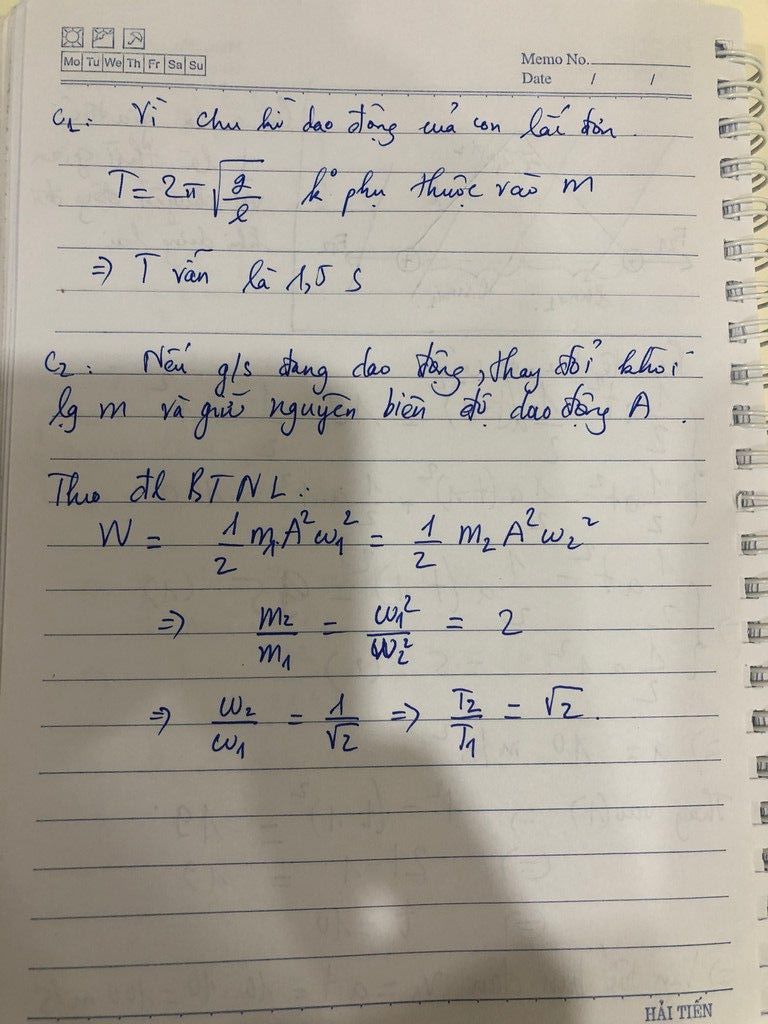 Mo Tu We Th Fr Sa Su
Memo No.
Date / /
C1: Vì chu kì dao động của con lắc đơn
T = 2π√(g/l) k° phụ thuộc vào m
=> T vẫn là 1,5 s
C2: Nếu g/s đang dao động, thay đổi khối
lg m và giữ nguyên biên độ dao động A.
Theo đl BTNL:
W = 1/2 m₁A²ω₁² = 1/2 m₂A²ω₂²
=> m₂/m₁ = ω₁²/ω₂² = 2
=> ω₂/ω₁ = 1/√2 => T₂/T₁ = √2.
HẢI TIẾN